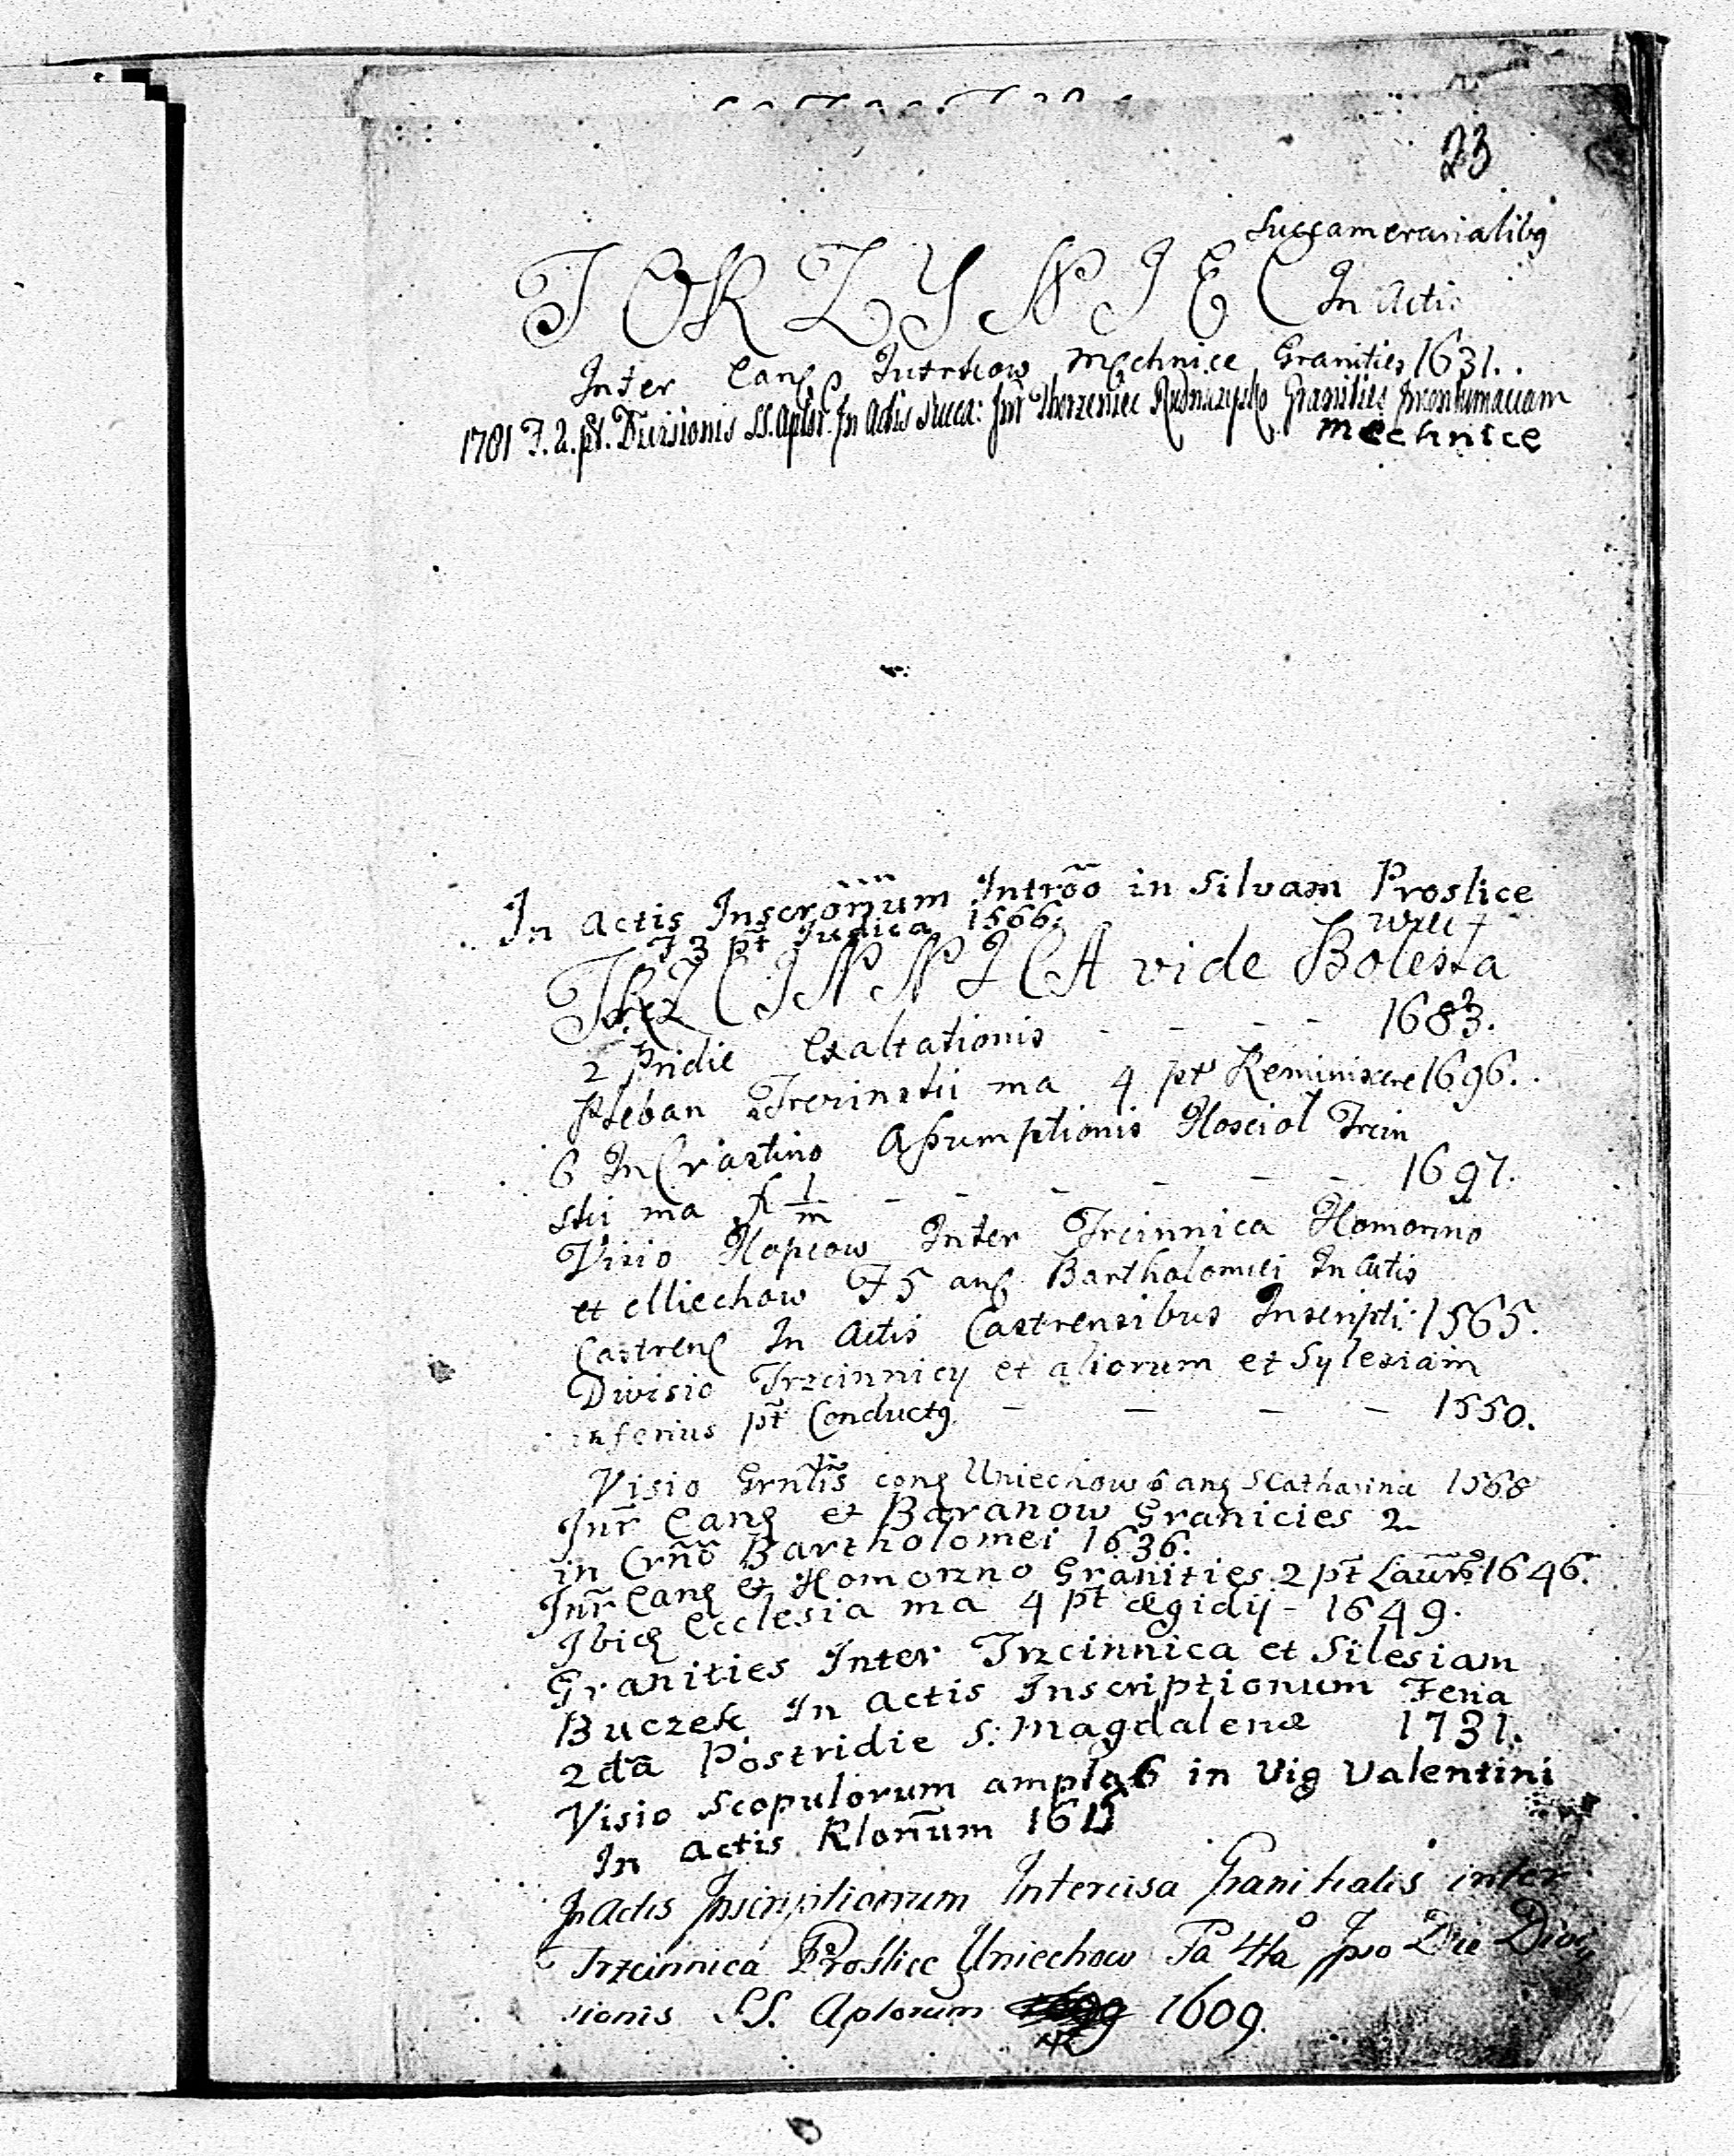 23
Succamerarialibg
TORZYNIEC In Actis
Inter Eang Mechnice Granities 1631.
1781 F. 2. pt. Divisionis SS. Aplor. In Actis Succa: Inr Thorzeniec Granities
Mechnice
In Actis Inscrōnum Introō in Silvam Proslice
F 3 pt Judica 1566.
TRZCINNICA vide Bolesta
2 Pridie Exaltationis - - - - 1683.
Pleban ma 4 pt Reminiscere 1696.
6 In Crastino Assumptionis Kosciol Trcin
ski ma - - - - - - 1697.
Visio Kopcow Inter Trcinnica Komorno
et Miechow F 5 ang Bartholomei In Actis
Castreng In Actis Castrensibus Inscripti: 1565.
Divisio Trzcinnicy et aliorum et Sylesiam
inferius pt Conductg - - - - 1550.
Visio Grnlis cong Uniechow 6 ang S Catharina 1568
Inr Eang et Baranow Granicies 2
in Crño Bartholomei 1636.
Inr Eang et Komorzno Granities 2 pt Laur: 1646.
Ibid Ecclesia ma 4 pt Ægidij - 1649.
Granities Inter Trzcinnica et Silesiam
Buczek In Actis Inscriptionum Feria
2da Postridie S: Magdalenæ 1731.
Visio Scopulorum 6 in Vig Valentini
In Actis Rlonum
In Actis Inscriptionum Intercisa Granitialis inter
Trzcinnica Proslice Uniechow Fa 4ta Ipso Die Divi
sionis SS. Aplorum 1609.